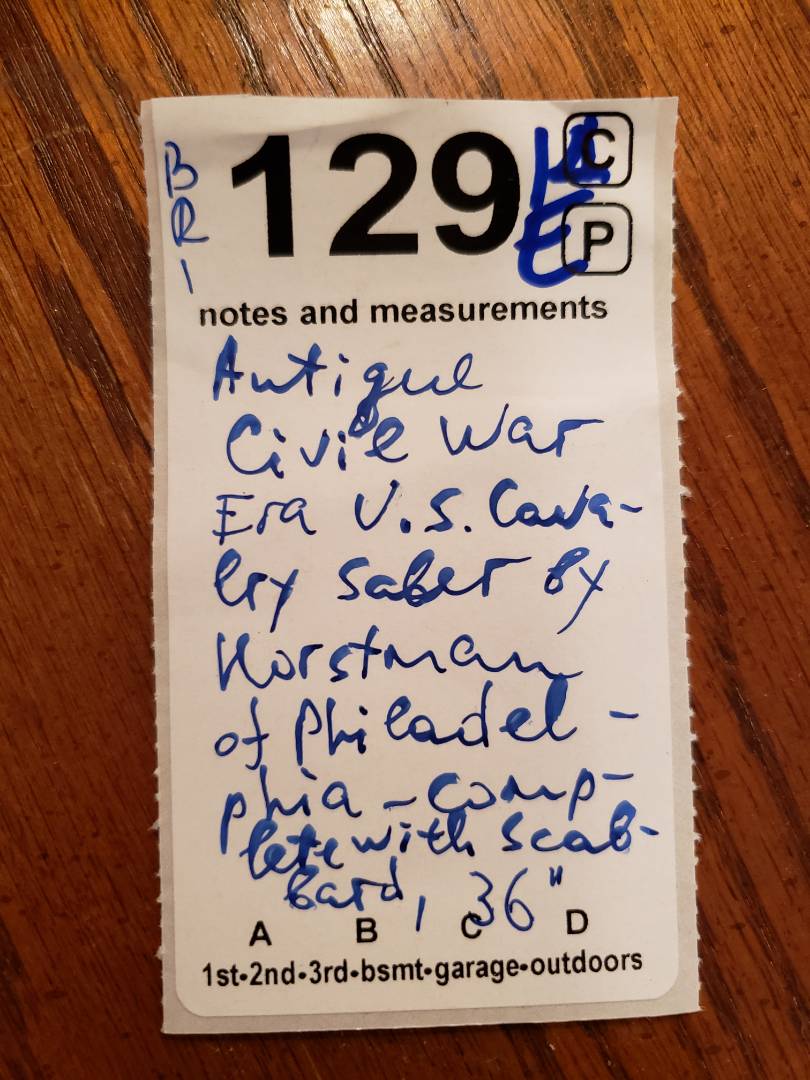 BRI
129
C
P
notes and measurements
Antique
Civil War
Era U.S. Cava-
lry saber by
Horstman
of Philadel-
phia - comp-
lete with scab-
bard, 36"
A B C D
1st•2nd•3rd•bsmt•garage•outdoors